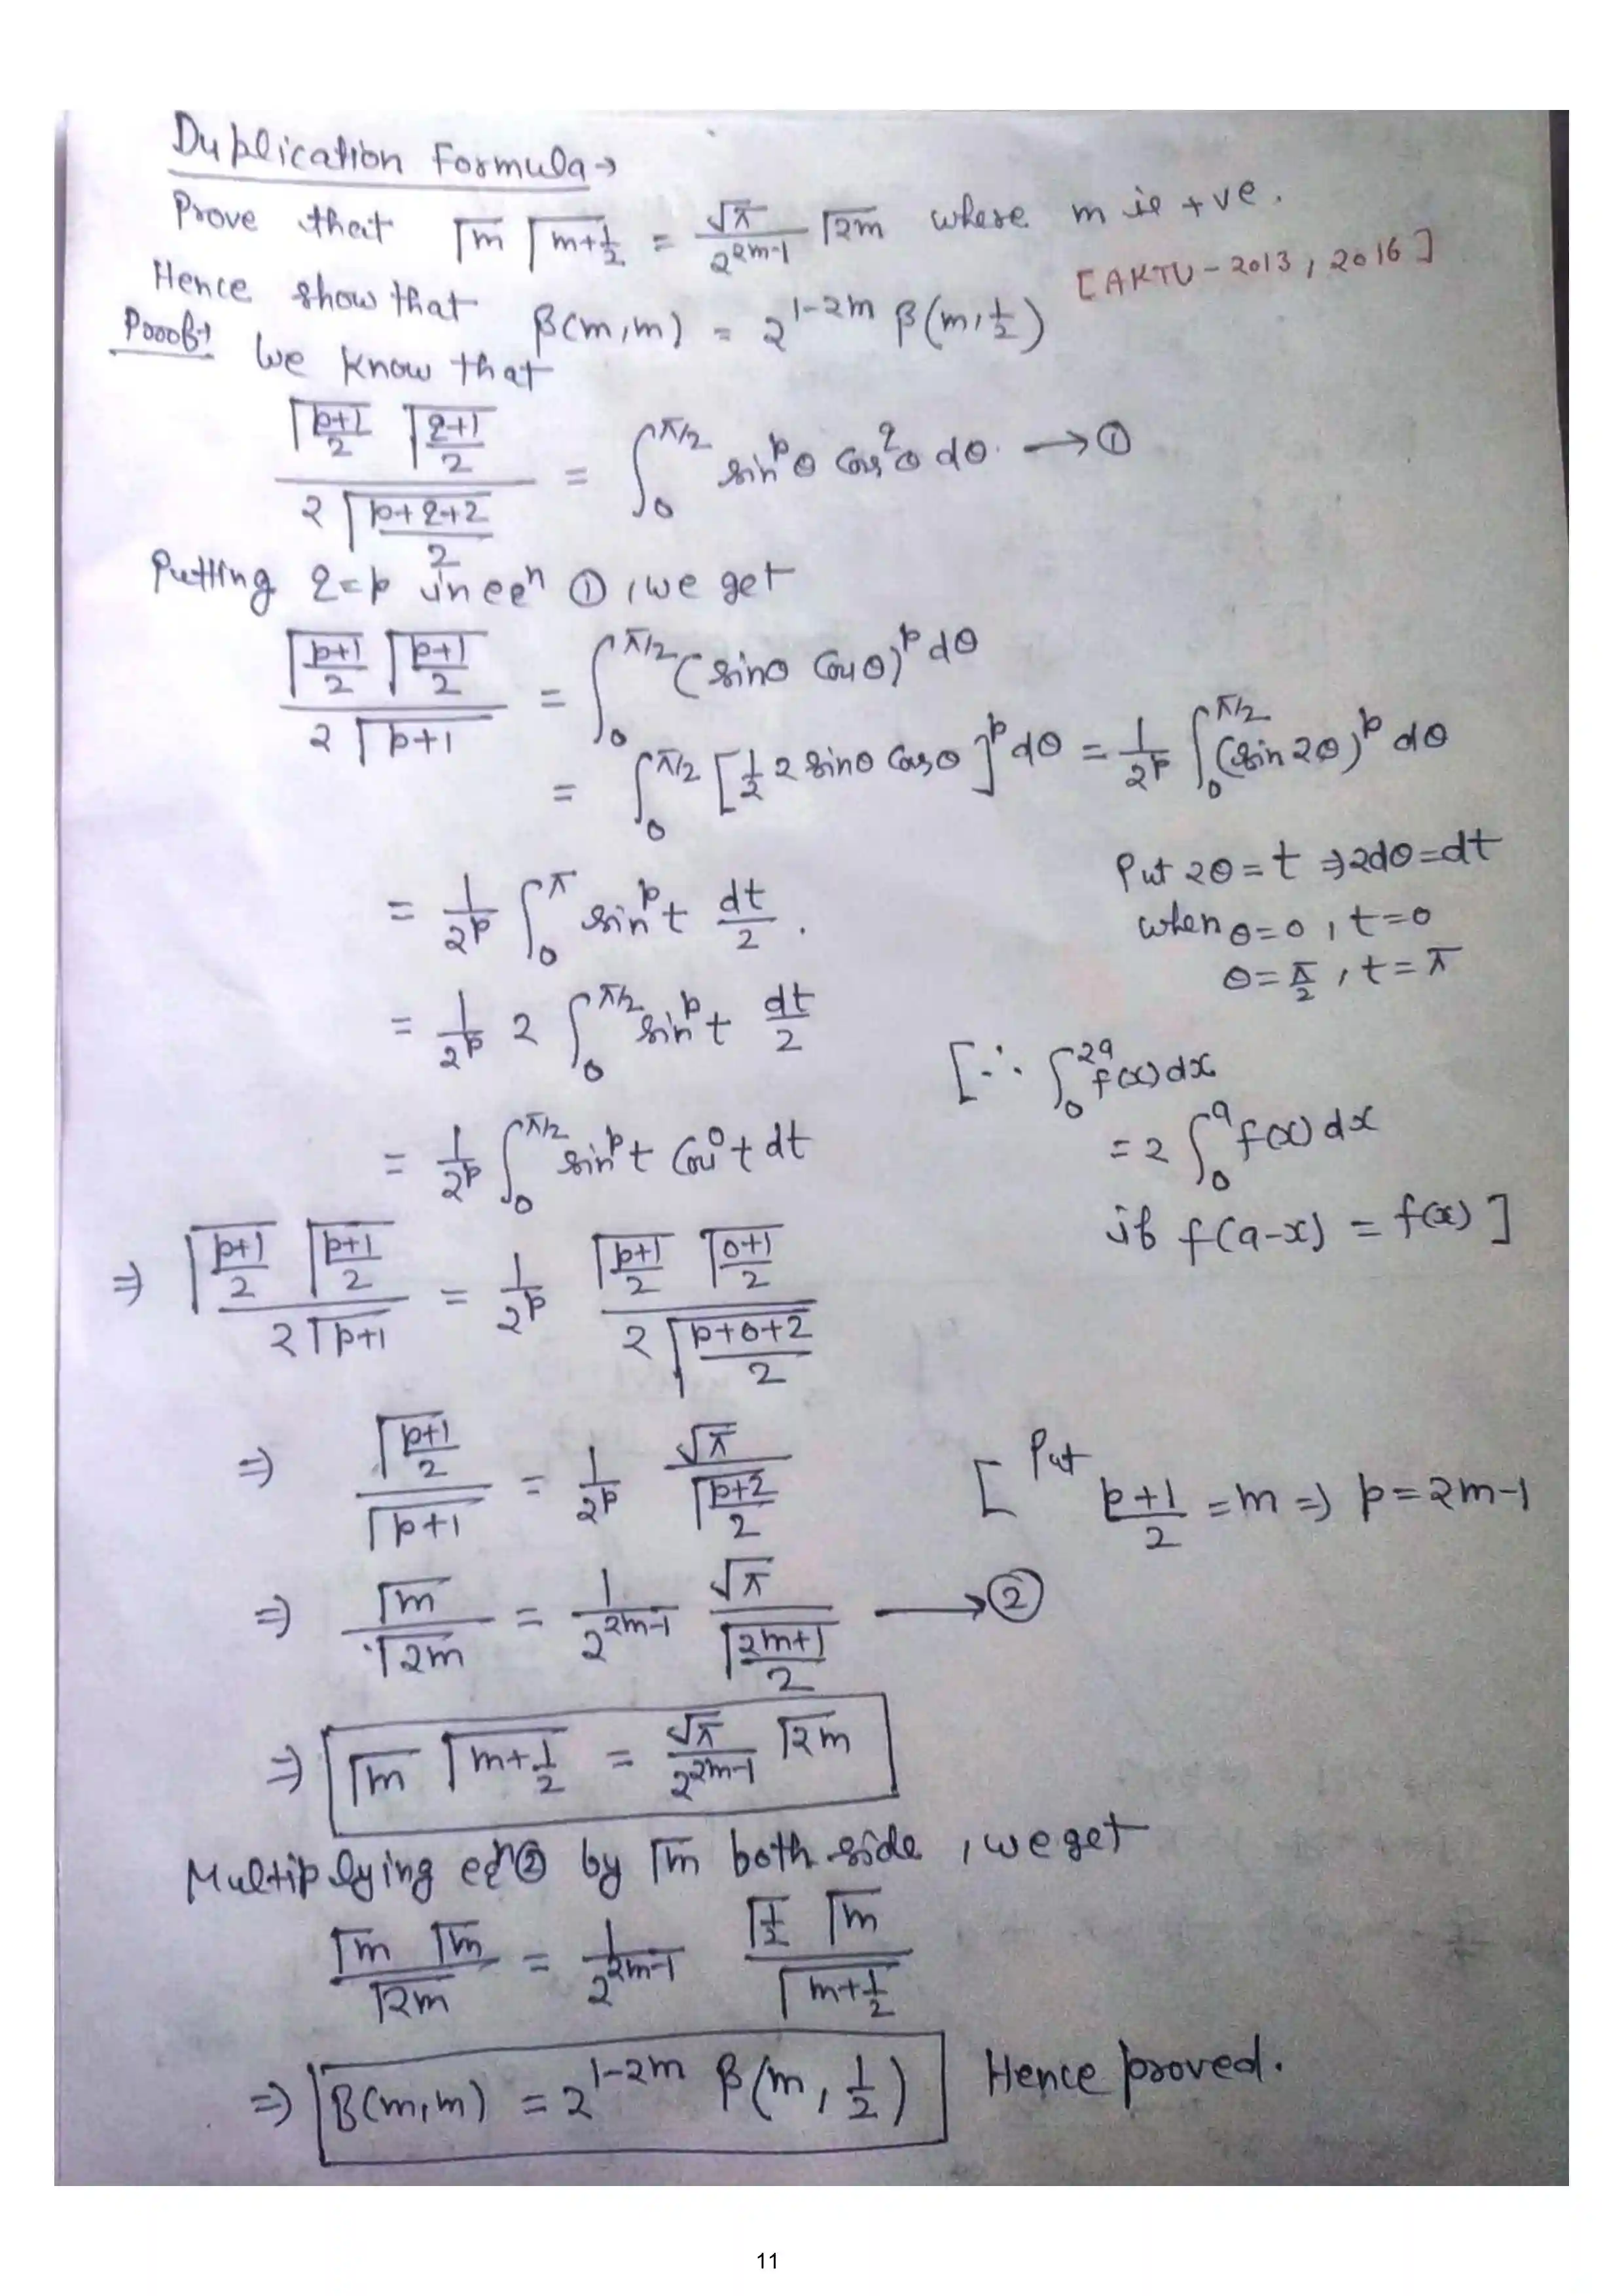 Duplication Formula →
Prove that Γm Γ(m+1/2) = √π/2^(2m-1) Γ2m where m is +ve.
Hence show that β(m,m) = 2^(1-2m) β(m,1/2) [AKTU - 2013, 2016]
Proof→ We know that
Γ((p+1)/2) Γ((q+1)/2) / 2Γ((p+q+2)/2) = ∫₀^(π/2) sin^p θ cos^q θ dθ → ①
Putting q=p in eqⁿ ①, we get
Γ((p+1)/2) Γ((p+1)/2) / 2Γ(p+1) = ∫₀^(π/2) (sinθ cosθ)^p dθ
= ∫₀^(π/2) [1/2 2 sinθ cosθ]^p dθ = 1/2^p ∫₀^(π/2) (sin 2θ)^p dθ
Put 2θ = t ⇒ 2dθ = dt
when θ=0, t=0
θ = π/2, t = π
= 1/2^p ∫₀^π sin^p t dt/2.
= 1/2^p 2 ∫₀^(π/2) sin^p t dt/2
[∵ ∫₀^(2a) f(x) dx
= 2 ∫₀^a f(x) dx
if f(a-x) = f(x)]
= 1/2^p ∫₀^(π/2) sin^p t cos^0 t dt
⇒ Γ((p+1)/2) Γ((p+1)/2) / 2Γ(p+1) = 1/2^p Γ((p+1)/2) Γ((0+1)/2) / 2Γ((p+0+2)/2)
⇒ Γ((p+1)/2) / Γ(p+1) = 1/2^p √π / Γ((p+2)/2) [Put (p+1)/2 = m ⇒ p = 2m-1
⇒ Γm / Γ2m = 1/2^(2m-1) √π / Γ((2m+1)/2) → ②
⇒ Γm Γ(m+1/2) = √π/2^(2m-1) Γ2m
Multiplying eqⁿ② by Γm both side, we get
Γm Γm / Γ2m = 1/2^(2m-1) Γ(1/2) Γm / Γ(m+1/2)
⇒ β(m,m) = 2^(1-2m) β(m, 1/2) Hence proved.
11